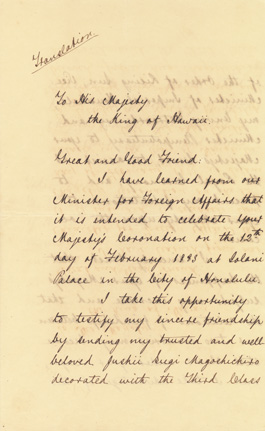 Translation
To His Majesty
the King of Hawaii
Great and Good Friend:
I have learned from our
Minister for Foreign Affairs that
it is intended to celebrate Your
Majesty's Coronation on the 12th
day of February 1883 at Iolani
Palace in the City of Honolulu.
I take this opportunity
to testify my sincere friendship
by sending my trusted and well
beloved Jushii Sugi Magoshichiro
decorated with the Third Class